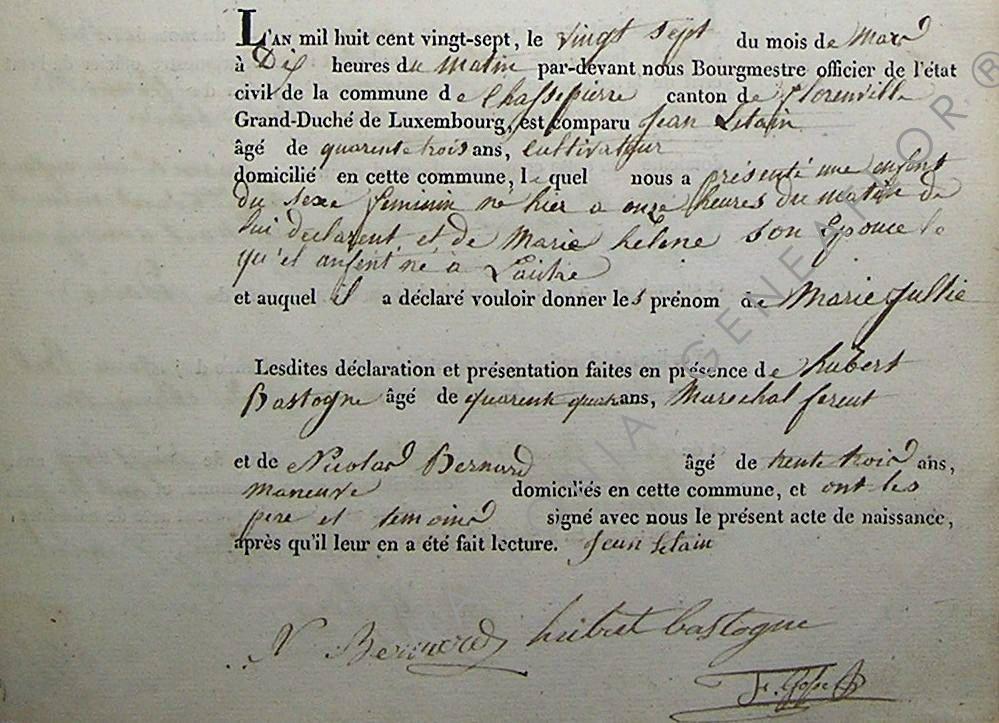 L'AN mil huit cent vingt-sept, le vingt sept du mois de Mars
à Dix heures du matin par-devant nous Bourgmestre officier de l'état
civil de la commune de Chassepierre canton de Florenville
Grand-Duché de Luxembourg, est comparu Jean Letain
âgé de quarente trois ans, Cultivateur
domicilié en cette commune, le quel nous a présenté une enfant
du sexe feminin ne hier a onze heures du matin de
lui declarent et de Marie helene son Epouce le
qu'el anfent né à Laiche
et auquel il a déclaré vouloir donner les prénom de Marie Jullie
Lesdites déclaration et présentation faites en présence de hubert
Bastogne âgé de quarente quatre ans, Marechal ferent
et de Nicolas Bernard âgé de trente trois ans,
maneuvre domiciliés en cette commune, et ont les
pere et temoins signé avec nous le présent acte de naissance,
après qu'il leur en a été fait lecture. Jean Letain
N Bernard hubert bastogne
GENEANOR ®